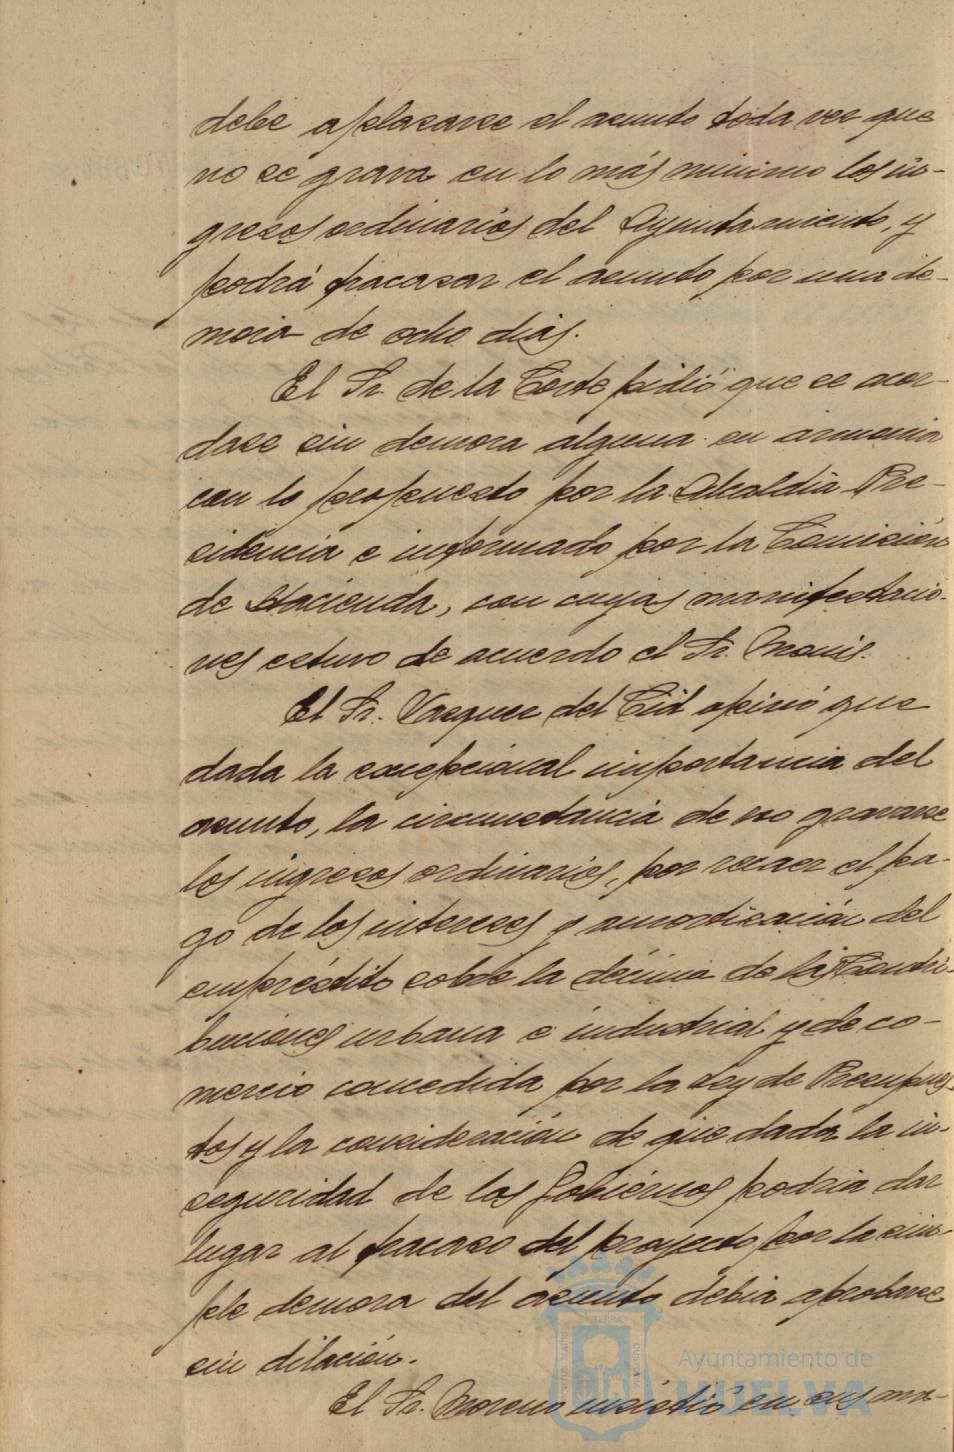 debe aplazarse el asunto toda vez que
no se grava en lo más minimo los in-
gresos ordinarios del Ayuntamiento, y
podrá fracasar el asunto por una de-
mora de ocho dias.
El Sr. de la Corte pidió que se acor-
dase sin demora alguna en armonia
con lo propuesto por la Alcaldia Pre-
sidencia e informado por la Comision
de Hacienda, con cuyas manifestacio-
nes estuvo de acuerdo el Sr. Monis.
El Sr. Vazquez del Cid opinó que
dada la excepcional importancia del
asunto, la circunstancia de no gravarse
los ingresos ordinarios, por recaer el pa-
go de los intereses y amortización del
empréstito sobre la décima de las Contri-
buciones urbana e industrial y de co-
mercio concedida por la Ley de Presupues-
tos y la consideración de que dada la in-
seguridad de los Gobiernos podria dar
lugar al fracaso del proyecto por la sim-
ple demora del asunto debia aprobarse
sin dilación.
El Sr. Moreno insistió en sus ma-
Ayuntamiento de
HUELVA